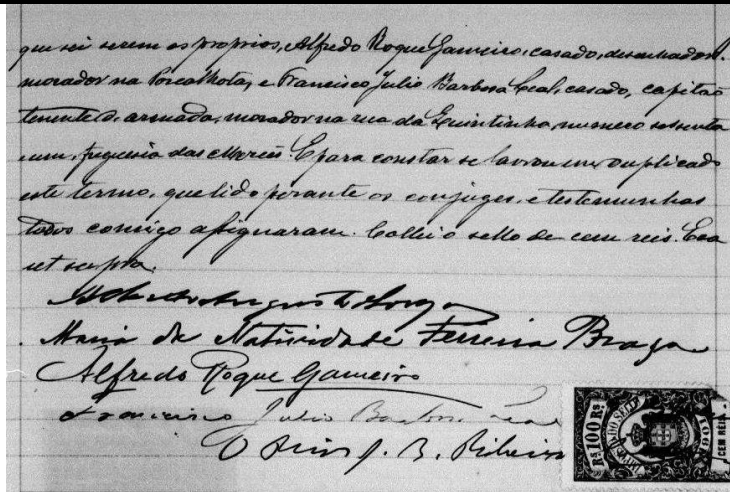 que sei serem os proprios, Alfredo Roque Gameiro, casado, desenhador,
morador na Porcalhota, e Francisco Julio Barbosa Leal, casado, capitão
tenente d'armada, morador na rua da Quintinha, numero sessenta
e um, freguesia das Mercês. E para constar se lavrou em duplicado
este termo, que lido perante os conjuges, e testemunhas
todos comigo assignaram. Collei o sello de cem reis. Era
ut supra.
Alberto Augusto
Maria da Natividade Ferreira Braga
Alfredo Roque Gameiro
Francisco Julio Barbosa Leal
O Prior J. B. Ribeiro
RS 100 RS
CEM REIS